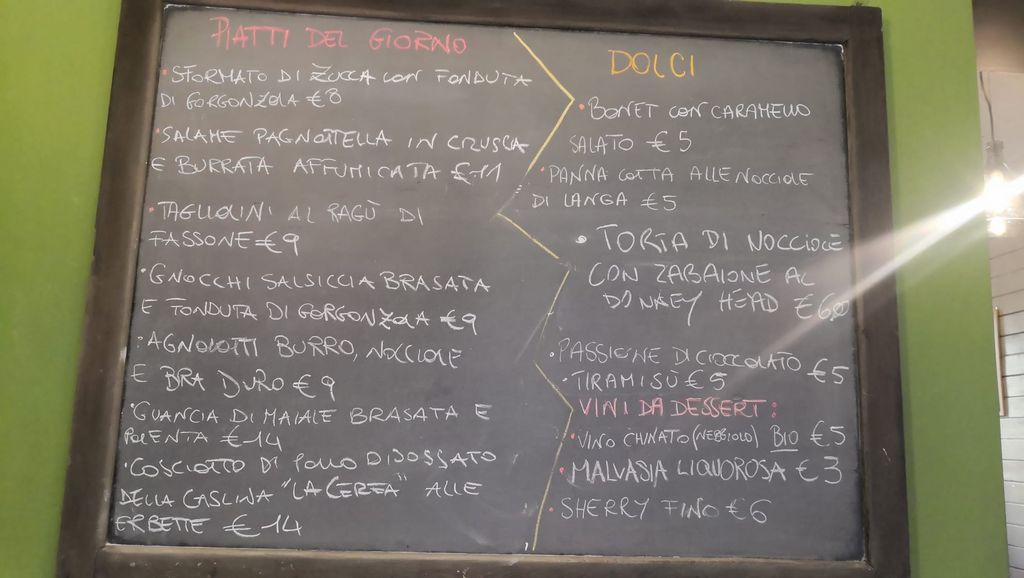 PIATTI DEL GIORNO
• SFORMATO DI ZUCCA CON FONDUTA
DI GORGONZOLA € 8
• SALAME PAGNOTTELLA IN CRUSCA
E BURRATA AFFUMICATA € 11
• TAGLIOLINI AL RAGÙ DI
FASSONE € 9
• GNOCCHI SALSICCIA BRASATA
E FONDUTA DI GORGONZOLA € 9
• AGNOLOTTI BURRO, NOCCIOLE
E BRA DURO € 9
• GUANCIA DI MAIALE BRASATA E
POLENTA € 14
• COSCIOTTO DI POLLO DISOSSATO
DELLA CASCINA "LA CEREA" ALLE
ERBETTE € 14
DOLCI
• BONET CON CARAMELLO
SALATO € 5
• PANNA COTTA ALLE NOCCIOLE
DI LANGA € 5
• TORTA DI NOCCIOLE
CON ZABAIONE AL
DONKEY HEAD € 6,0
• PASSIONE DI CIOCCOLATO € 5
• TIRAMISÙ € 5
VINI DA DESSERT:
• VINO CHINATO (NEBBIOLO) BIO € 5
• MALVASIA LIQUOROSA € 3
• SHERRY FINO € 6